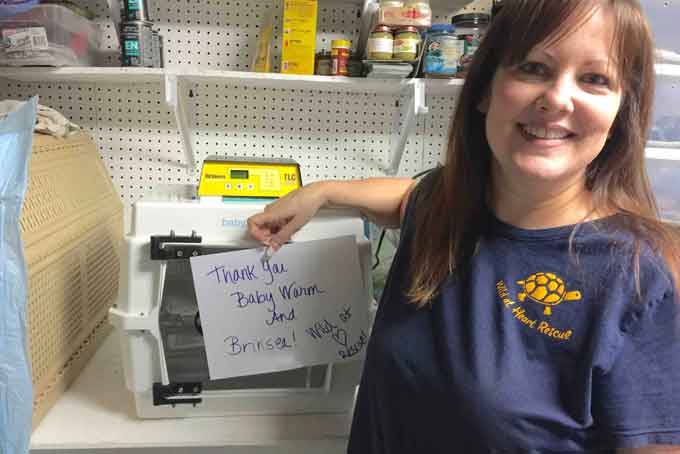 EN
Brinsea
TLC
baby
Thank You
Baby Warm
And
Brinsea!
Wild at
Rescue!
Wild at Heart Rescue